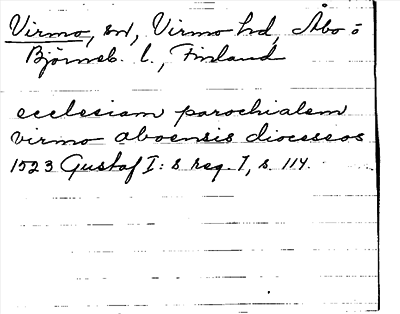 Virmo, sn, Virmo hd, Åbo o
Björneb. l., Finland
ecclesiam parochialem
virmo aboensis dioceseos
1523 Gustaf I:s reg. 1, s. 114.